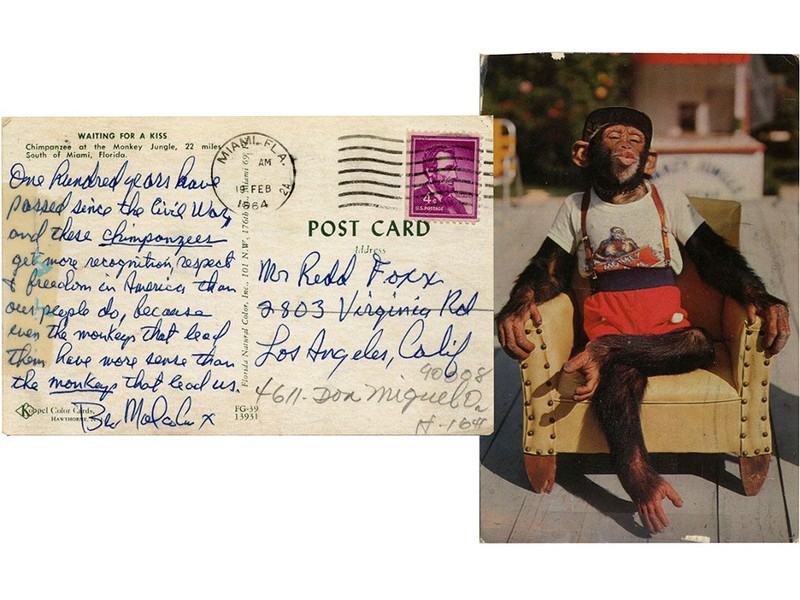 WAITING FOR A KISS
Chimpanzee at the Monkey Jungle, 22 miles
South of Miami, Florida.
One hundred years have
passed since the Civil War,
and these chimpanzees
get more recognition, respect
& freedom in America than
our people do, because
even the monkeys that lead
them have more sense than
the monkeys that lead us.
Bro Malcolm X
Koppel Color Cards
HAWTHORNE, N.
FG-39
13931
Florida Natural Color, Inc., 101 N.W. 176th Miami 69,
MIAMI, FLA.
AM
19 FEB
1964
2A
4¢
U.S. POSTAGE
POST CARD
Address
Mr Redd Foxx
2803 Virginia Rd
Los Angeles, Calif
90008
4611-Don Miguel Dr
H-164